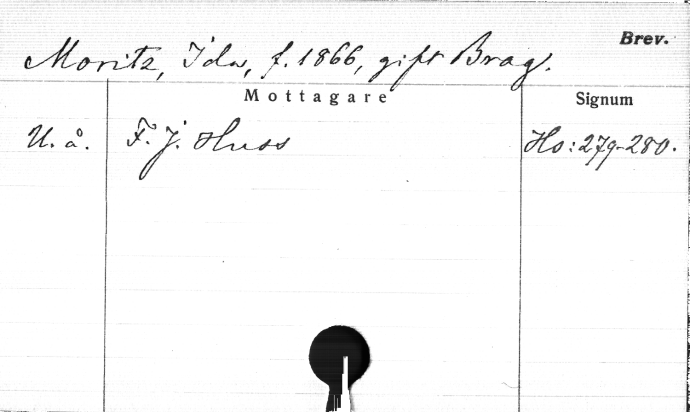 Brev.
Moritz, Ida, f. 1866, gift Brag.
Mottagare Signum
U. å. F. J. Huss Ho: 279-280.